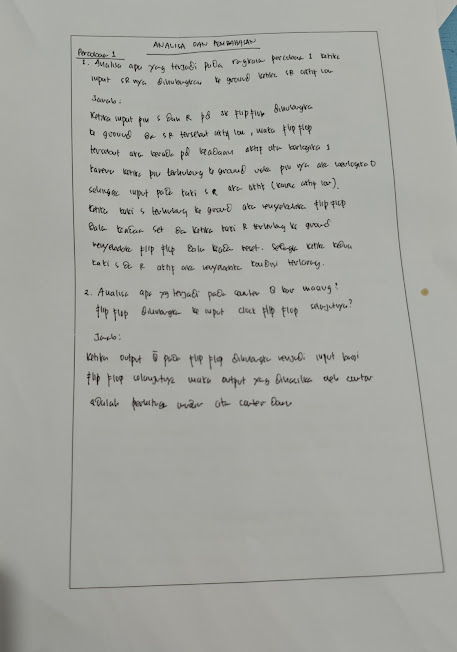 ANALISA DAN PEMBAHASAN
Percobaan 1
1. Analisa apa yang terjadi pada rangkaian percobaan 1 ketika
input SR nya dihubungkan ke ground ketika SR aktif low
Jawab :
Ketika input pin S dan R pd JK flip flop dihubungka
ke ground dan SR tersebut aktif low, maka flip flop
tersebut aka berada pd keadaan aktif ata berlogika 1
karena ketika pin terhubung ke ground maka pin nya aka berlogika 0
sehingga input pada kaki S R aka aktif (karna aktif low).
Ketika kaki S terhubung ke ground aka menyebabka flip flop
dalam keadaan set dan ketika kaki R terhubung ke ground
menyebabka flip flop dalam keada reset. Sehingga ketika kedua
kaki S dan R aktif aka menyebabka kondisi terlarang.
2. Analisa apa yg terjadi pada counter Q bar masing²
flip flop dihubungka ke input clock flip flop selanjutnya?
Jawab :
Ketika output Q̅ pada flip flop dihubungka menjadi input bagi
flip flop selanjutnya maka output yang dihasilka oleh counter
adalah perhitunga mundur ata counter down